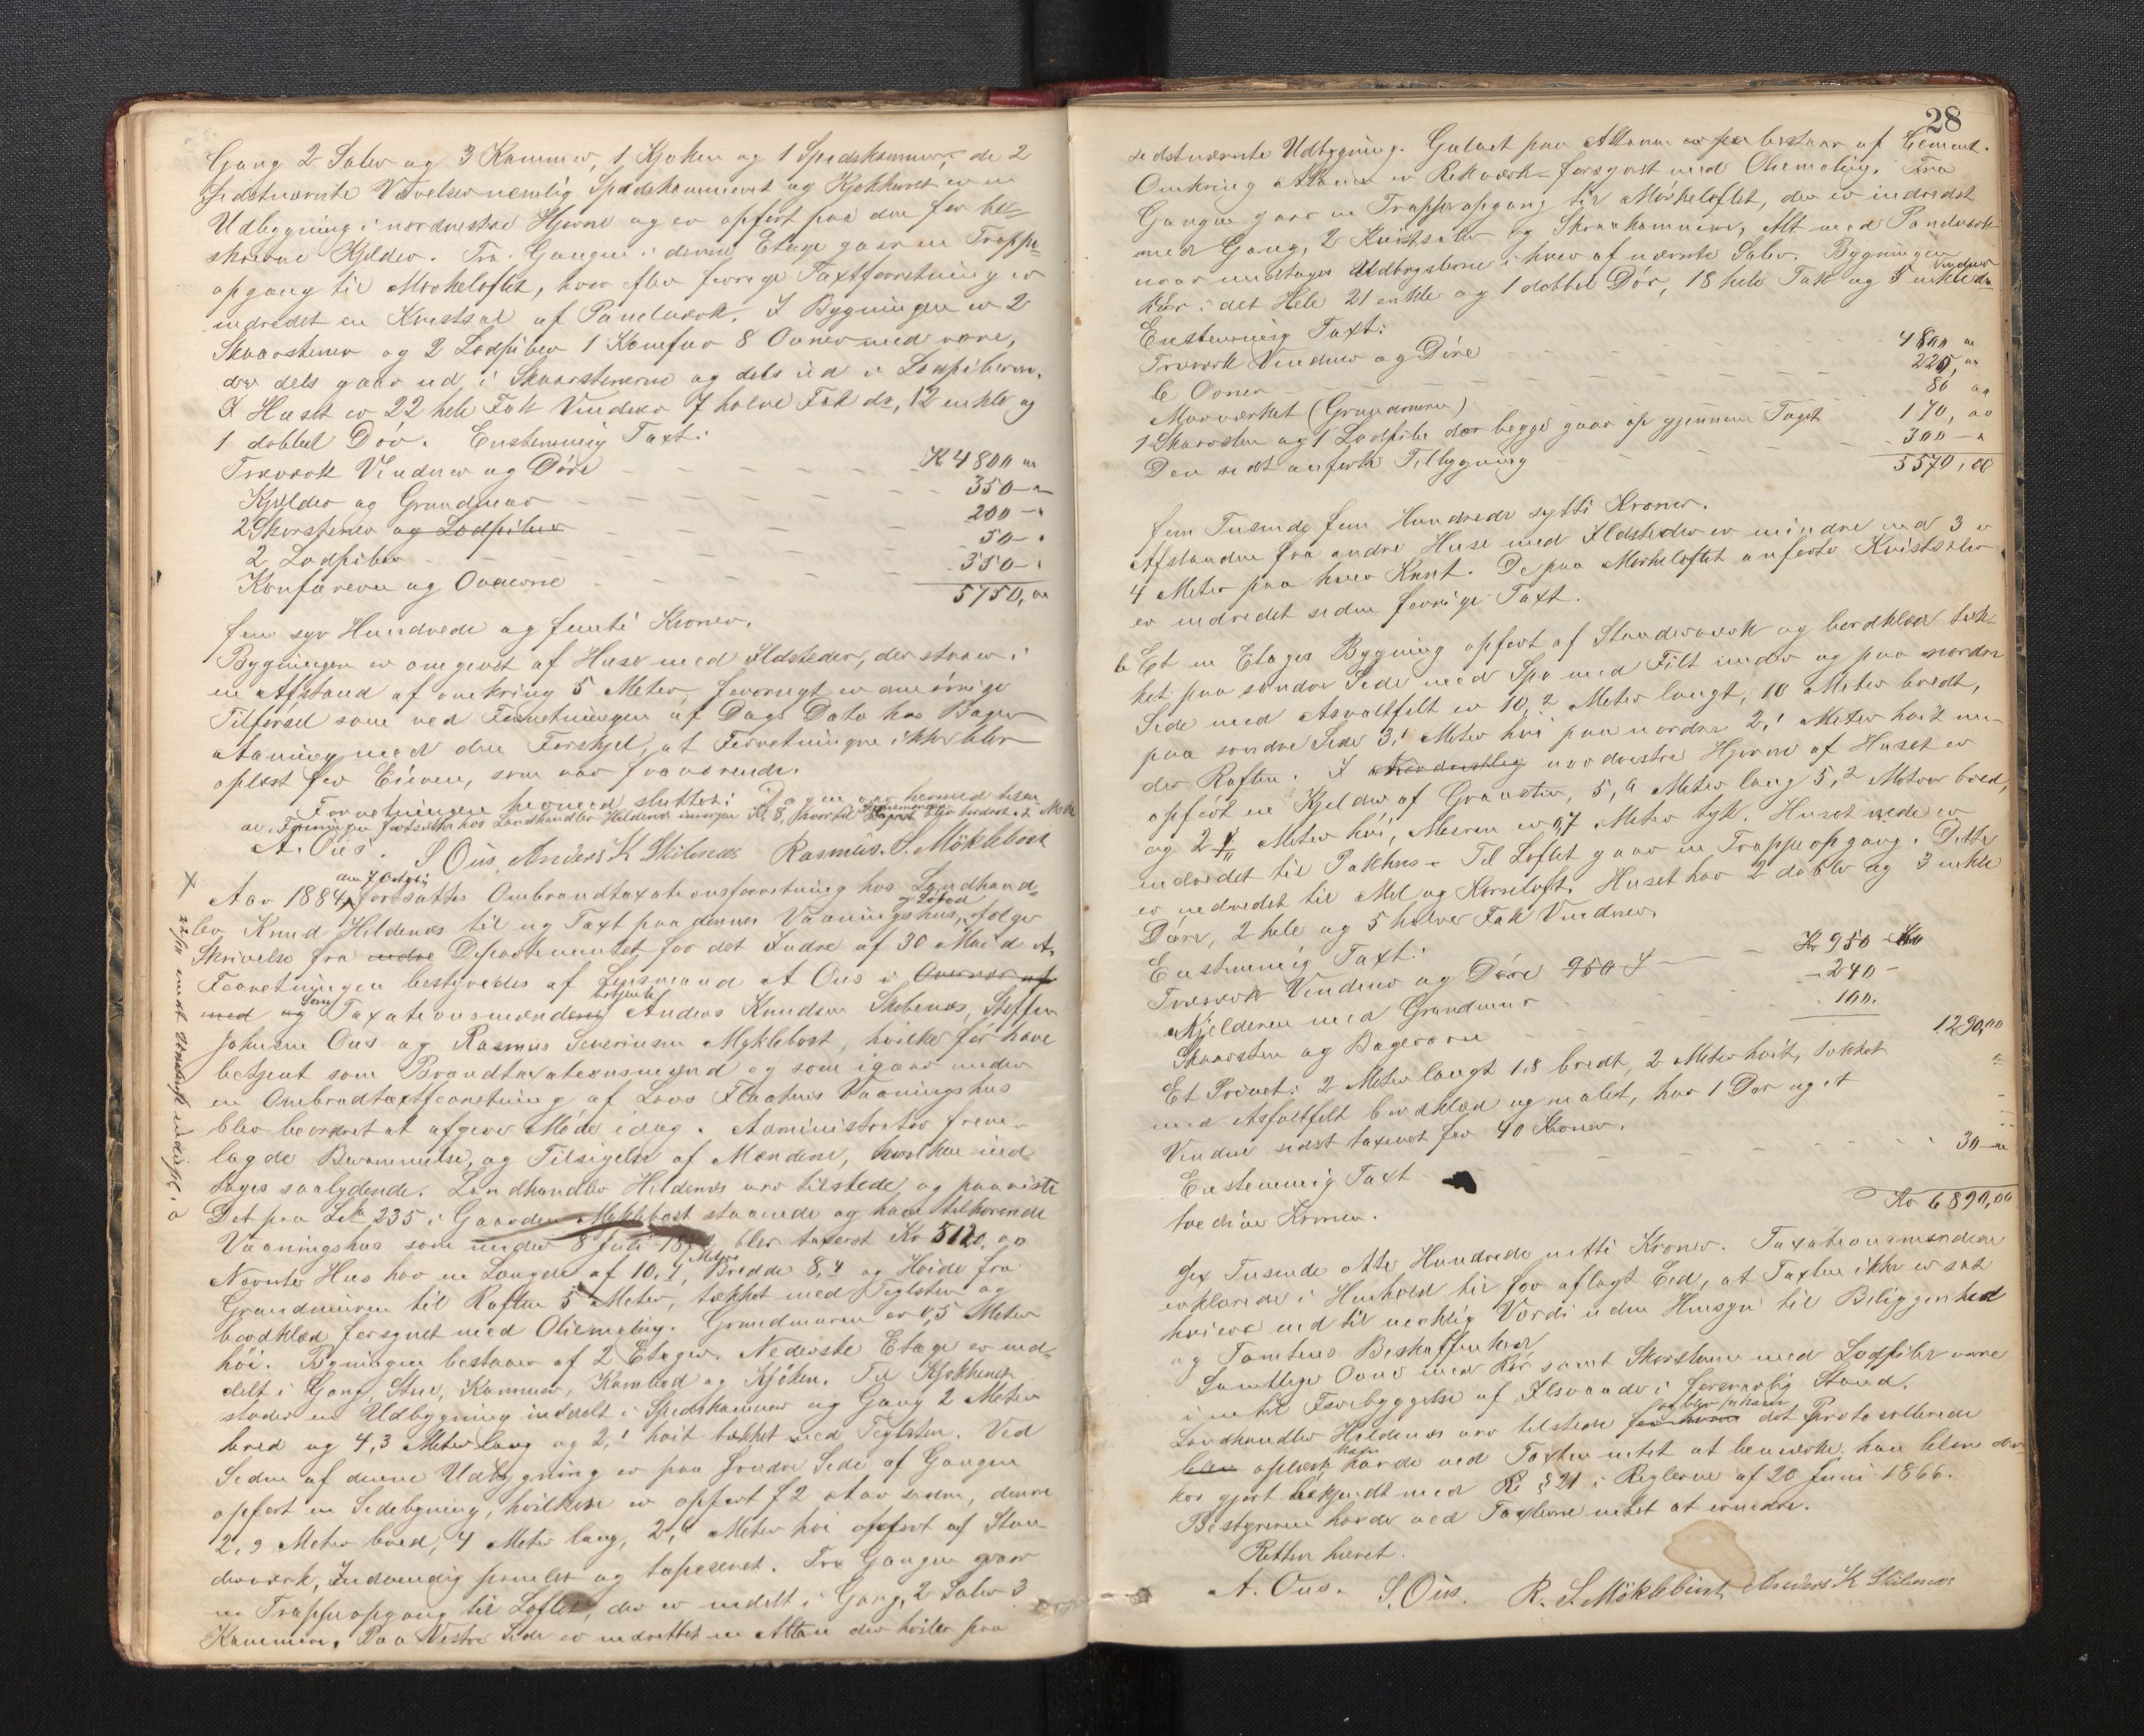 Gang 2 Saler og 3 Kammer, 1 Kjøken og 1 Spedskammer, de 2
sidstnævnte Værelser nemlig Spedskammeret og Kjøkkenet er en
Udbygning i nordvestre Hjørne og er opført paa den før be-
skrevne Kjelder. Fra Gangen i denne Etage gaar en Trappe-
opgang til Mørkeloftet, hvor efter forrige Taxtforretning er
indredet en Kvistsal af Panelværk. I Bygningen er 2
Skaarstener og 2 Lodpiber 1 Komfur 8 Ovner med rører,
der dels gaar ud i Skaarstenerne og dels ud i Lodpiberne.
I Huset er 22 hele Fak Vinduer 7 halve Fak do, 12 enkle og
1 dobbel Dør. Enstemmig Taxt:
Træværk Vinduer og Døre Kr 4800 "
Kjelder og Grundmur 350 "
2 Skorstener og Lodpiber 200 "
2 Lodpiber 50 "
Komfuren og Ovnerne 350 "
5750, "
fem syv Hundrede og femti Kroner.
Bygningen er omgivet af Huse med Ildsteder, der staar i
en Afstand af omkring 5 Meter, forøvrigt er den øvrige
Tilførsel som ved Forretningen af Dags Dato hos Bager
med den Forskjel, at Forretningen ikke blev
oplæst for Eieren, som var fraværende.
Forretningen hermed sluttet:
A. Ous. S Ous, Anders K Skilenæs Rasmus. S. Möklebost
den 7 October
X Aar 1884 fortsattes Ombrandtaxationsforretning hos Landhand-
ler Knud Hildenæs til ny Taxt paa dennes Vaaningshus, ifølge
Skrivelse fra indre Departementet for det Indre af 30 Mai d. A.
Forretningen bestyredes af Lensmand A Ous i Overvær af
med og som Taxationsmænd Anders Knudsen Skilenæs, Steffen
Johnsen Ous og Rasmus Severinsen Myklebost, hvilke før have
betjent som Brandtaxationsmænd og som igaar under
en Ombrandtaxtforretning af Lars Flaatens Vaaningshus
blev beordret at afgive Møde idag. Administrator frem-
lagde Berammelse, og Tilsigelse af Mændene, hvilken ind-
tages saalydende. Landhandler Hildenæs var tilstede og paaviste
Det paa Litr 235 i Gaarden Myklebost staaende og ham tilhørende
Vaaningshus som under 8 Juli blev taxeret Kr 5120.00
Nævnte Hus har en Længde af 10,1 Meter, Bredde 8,4 og Høide fra
Grundmuren til Raften 5 Meter, tækket med Teglsten og
bordklæd forsynet med Oliemaling. Grundmuren er 0,5 Meter
høi. Bygningen bestaar af 2 Etager. Nederste Etage er ind-
delt i Gang, Stue, Kammer, Kambod og Kjøken. Til Kjøkkenet
støder en Udbygning inddelt i Spedskammer og Gang 2 Meter
bred og 4,3 Meter lang og 2,1 høit tækket med Teglsten. Ved
Siden af denne Udbygning er paa søndre Side af Gangen
opført en Sidebygning, hvilken er opført f 2 Aar siden, denne
2,2 Meter bred, 4 Meter lang, 2,1 Meter høi opført af Stan-
derværk, Indvendig panelet og taperseret. Fra Gangen gaar
en Trappeopgang til Loftet, der er inddelt i Gang, 2 Saler 3
Kammer. Paa Vestre Side er indrettet en Altan der hviler paa
28
sidstnævnte Udbygning. Gulvet paa Altanen bestaar af Cement.
Omkring Altanen er Rækværk forsynet med Oliemaling. Fra
Gangen gaar en Trappeopgang til Mørkeloftet, der er indredet
med Gang, 2 Kvistsaler og Skraakammere, Alt med Panelværk
naar undtages Udbygsterne i hver af nævnte Saler. Bygningen
har i det Hele 21 enkle og 1 dobbel Dør, 18 hele Fak og 5 enkle Vinduer
Enstemmig Taxt:
Træværk Vinduer og Døre 4800 "
6 Ovner 220, "
Murværket (Grundmuren) 80 "
1 Skaarsten og 1 Lodpibe der begge gaar op gjennem Taget 170, "
Den sidst anførte Tilbygning 300 "
5570,00
fem Tusinde fem Hundrede sytti Kroner.
Afstanden fra andre Huse med Ildsteder er mindre end 3 a
4 Meter paa hver Kant. De paa Mørkeloftet anførte Kvistsaler
er indredet siden forrige Taxt.
b Et en Etages Bygning opført af Standerværk og bordklæd tæk-
ket paa søndre Side med Spo med Filt under og paa nordre
Side med Asvaltfilt er 10,2 Meter langt, 10 Meter bredt,
paa søndre Side 3,1 Meter høi paa nordre 2,1 Meter høit un-
der Raften. I nordvestre Hjørne af Huset er
opført en Kjelder af Graasten, 5,9 Meter lang 5,2 Meter bred,
og 2 Meter høi, Muren er 0,7 Meter tyk. Huset nede er
indredet til Pakhus. Til Loftet gaar en Trappeopgang. Dette
er indredet til Mel og Kornloft. Huset har 2 doble og 3 enkle
Døre, 2 hele og 5 halve Fak Vinduer.
Enstemmig Taxt:
Træværk Vinduer og Døre 950 Kr 950
Kjelderen med Grundmur 240
Skaarsten og Bagerovn 100.
1290,00
Et Privet: 2 Meter langt 1,8 bredt, 2 Meter høit, tækket
med Asfaltfilt bordklæd og malet, har 1 Dør og et
Vindue sidst taxeret for 40 Kroner.
Enstemmig Taxt 30
tredive Kroner.
Kr 6890,00
Sex Tusinde otte Hundrede nitti Kroner. Taxationsmændene
erklærede i Henhold til før aflagt Eed, at Taxten ikke er sat
høiere end til nøiagtig Værdi uden Hensyn til Beliggenhed
og Tomtens Beskaffenhed.
Samtlige Ovne med Rør samt Skorstene med Lodpibe vare
i en til Forebyggelse af Ildsvaade i forsvarlig Stand.
Landhandler Hildenæs var tilstede og blev for ham det Protocollerede
oplæst, han havde ved Taxten intet at bemærke. han blev der-
hos gjort bekjendt med § 21 i Reglerne af 20 Juni 1866.
Bestyreren havde ved Taxterne intet at erindre.
Retten hævet.
A. Ous. S. Ous. R. S. Möklebust, Anders K Skilenæs